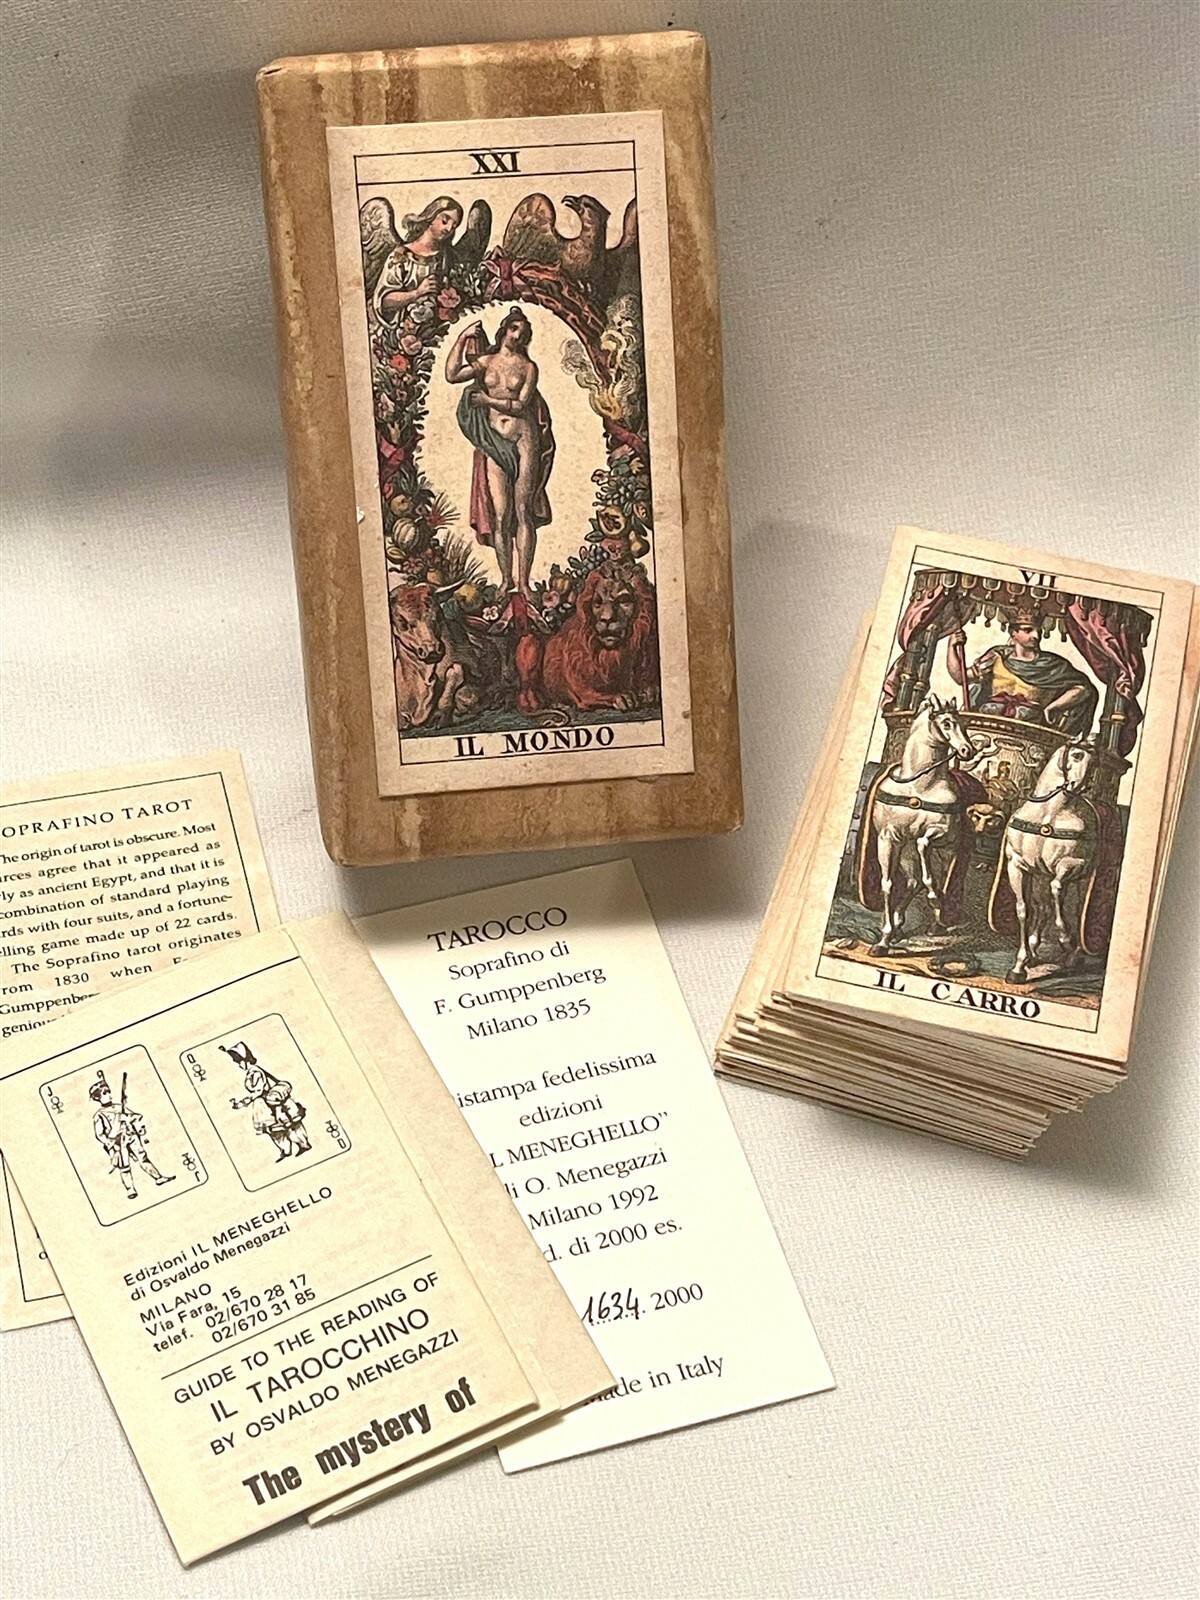 XXI
IL MONDO
VII
IL CARRO
SOPRAFINO TAROT
The origin of tarot is obscure. Most
agree that it appeared as
as ancient Egypt, and that it is
combination of standard playing
with four suits, and a fortune-
game made up of 22 cards.
The Soprafino tarot originates
1830 when
J
J
Q
Q
Edizioni IL MENEGHELLO
di Osvaldo Menegazzi
MILANO
Via Fara, 15
telef. 02/670 28 17
02/670 31 85
GUIDE TO THE READING OF
IL TAROCCHINO
BY OSVALDO MENEGAZZI
The mystery of
TAROCCO
Soprafino di
F. Gumppenberg
Milano 1835
istampa fedelissima
edizioni
L MENEGHELLO”
di O. Menegazzi
Milano 1992
d. di 2000 es.
1634. 2000
made in Italy